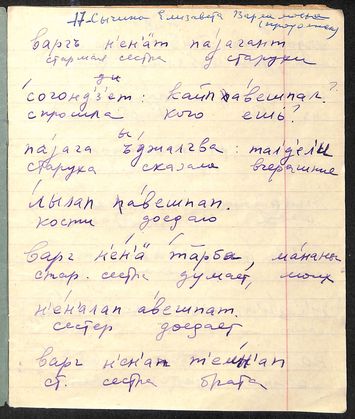 17. Сычина Елизавета
варгъ н'ен'ӓт пајагант
старшая сестра у старухи
ды
согонд'з'ет: кайп авешпал?
спросила кого ешь?
ы
пајага ъ̄джалгва: талдел'и
старуха сказала вчерашние
лылап павешпап.
кости доедаю
варг н'ен'ӓ тӓрба, мананы
стар. сестра думает, моих
н'е́налап авешпат.
сестер доедает
варг н'ен'ат т'емн'ап
ст. сестра брата